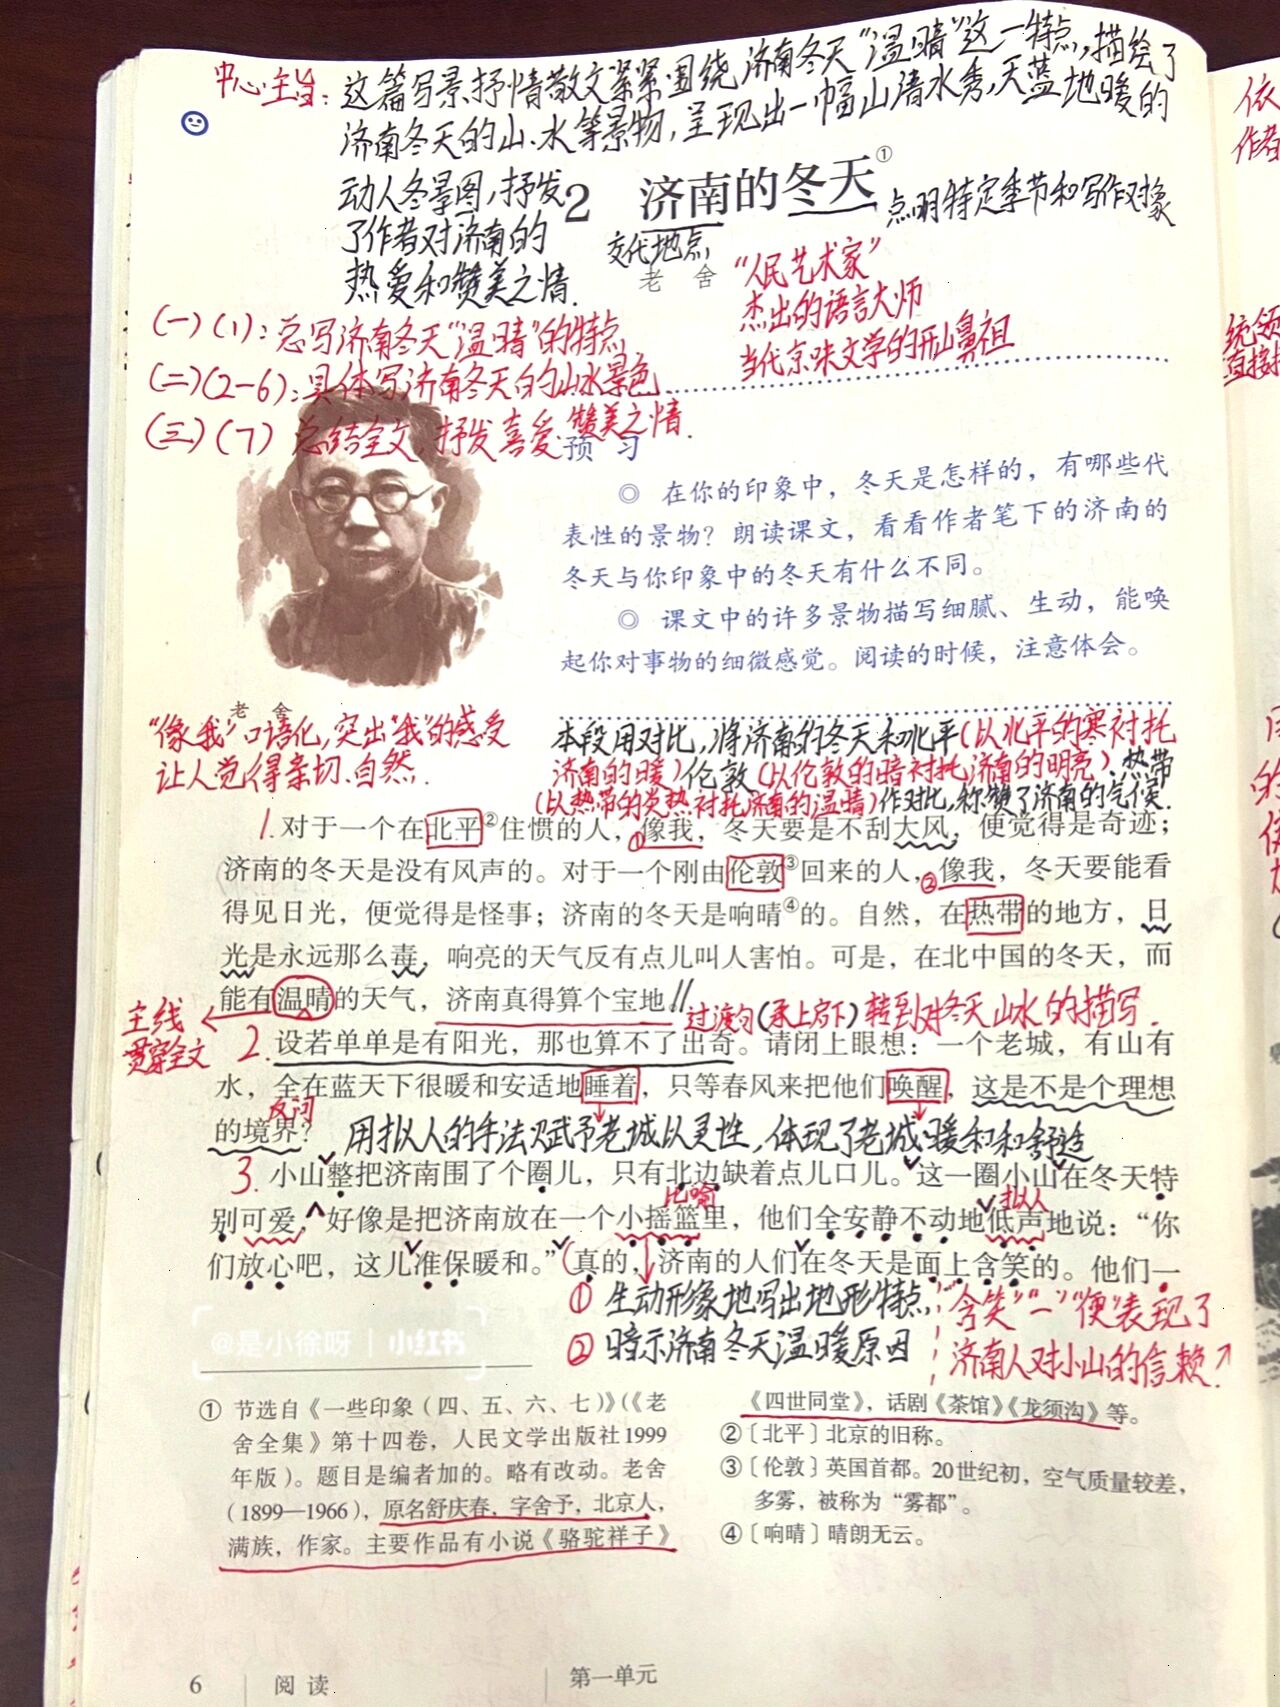 中心主旨：这篇写景抒情散文紧紧围绕济南冬天“温晴”这一特点，描绘了
济南冬天的山、水等景物，呈现出一幅山清水秀，天蓝地暖的
动人冬景图，抒发
了作者对济南的
热爱和赞美之情.
2 济南的冬天①
点明特定季节和写作对象
交代地点
老 舍
“人民艺术家”
杰出的语言大师
当代京味文学的开山鼻祖
(一)(1)：总写济南冬天“温晴”的特点
(二)(2-6)：具体写济南冬天的山水景色
(三)(7) 总结全文，抒发喜爱赞美之情.
预 习
◎ 在你的印象中，冬天是怎样的，有哪些代
表性的景物？朗读课文，看看作者笔下的济南的
冬天与你印象中的冬天有什么不同。
◎ 课文中的许多景物描写细腻、生动，能唤
起你对事物的细微感觉。阅读的时候，注意体会。
老 舍
“像我”口语化，突出“我”的感受
让人觉得亲切、自然.
本段用对比，将济南的冬天和北平(以北平的寒衬托
济南的暖)伦敦(以伦敦的暗衬托济南的明亮).热带
(以热带的炎热衬托济南的温晴)作对比，称赞了济南的气候.
1.对于一个在北平②住惯的人，①像我，冬天要是不刮大风，便觉得是奇迹；
济南的冬天是没有风声的。对于一个刚由伦敦③回来的人，②像我，冬天要能看
得见日光，便觉得是怪事；济南的冬天是响晴④的。自然，在热带的地方，日
光是永远那么毒，响亮的天气反有点儿叫人害怕。可是，在北中国的冬天，而
能有温晴的天气，济南真得算个宝地。
过渡句(承上启下)转到对冬天山水的描写.
主线
贯穿全文
2.设若单单是有阳光，那也算不了出奇。请闭上眼想：一个老城，有山有
水，全在蓝天下很暖和安适地睡着，只等春风来把他们唤醒，这是不是个理想
反问
的境界？
用拟人的手法赋予老城以灵性，体现了老城暖和和舒适
3.小山整把济南围了个圈儿，只有北边缺着点儿口儿。这一圈小山在冬天特
比喻
拟人
别可爱，好像是把济南放在一个小摇篮里，他们全安静不动地低声地说：“你
们放心吧，这儿准保暖和。”(真的，济南的人们在冬天是面上含笑的。他们一
① 生动形象地写出地形特点
② 暗示济南冬天温暖原因
“含笑”“一”“便”表现了
济南人对小山的信赖.
@是小徐呀 | 小红书
① 节选自《一些印象（四、五、六、七）》（《老
舍全集》第十四卷，人民文学出版社1999
年版）。题目是编者加的。略有改动。老舍
（1899—1966），原名舒庆春，字舍予，北京人，
满族，作家。主要作品有小说《骆驼祥子》
《四世同堂》，话剧《茶馆》《龙须沟》等。
②〔北平〕北京的旧称。
③〔伦敦〕英国首都。20世纪初，空气质量较差，
多雾，被称为“雾都”。
④〔响晴〕晴朗无云。
6 阅读 第一单元
依
作者
统领
直接